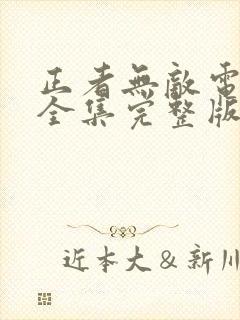 正者無敵電
全集完整版
近本大&新川